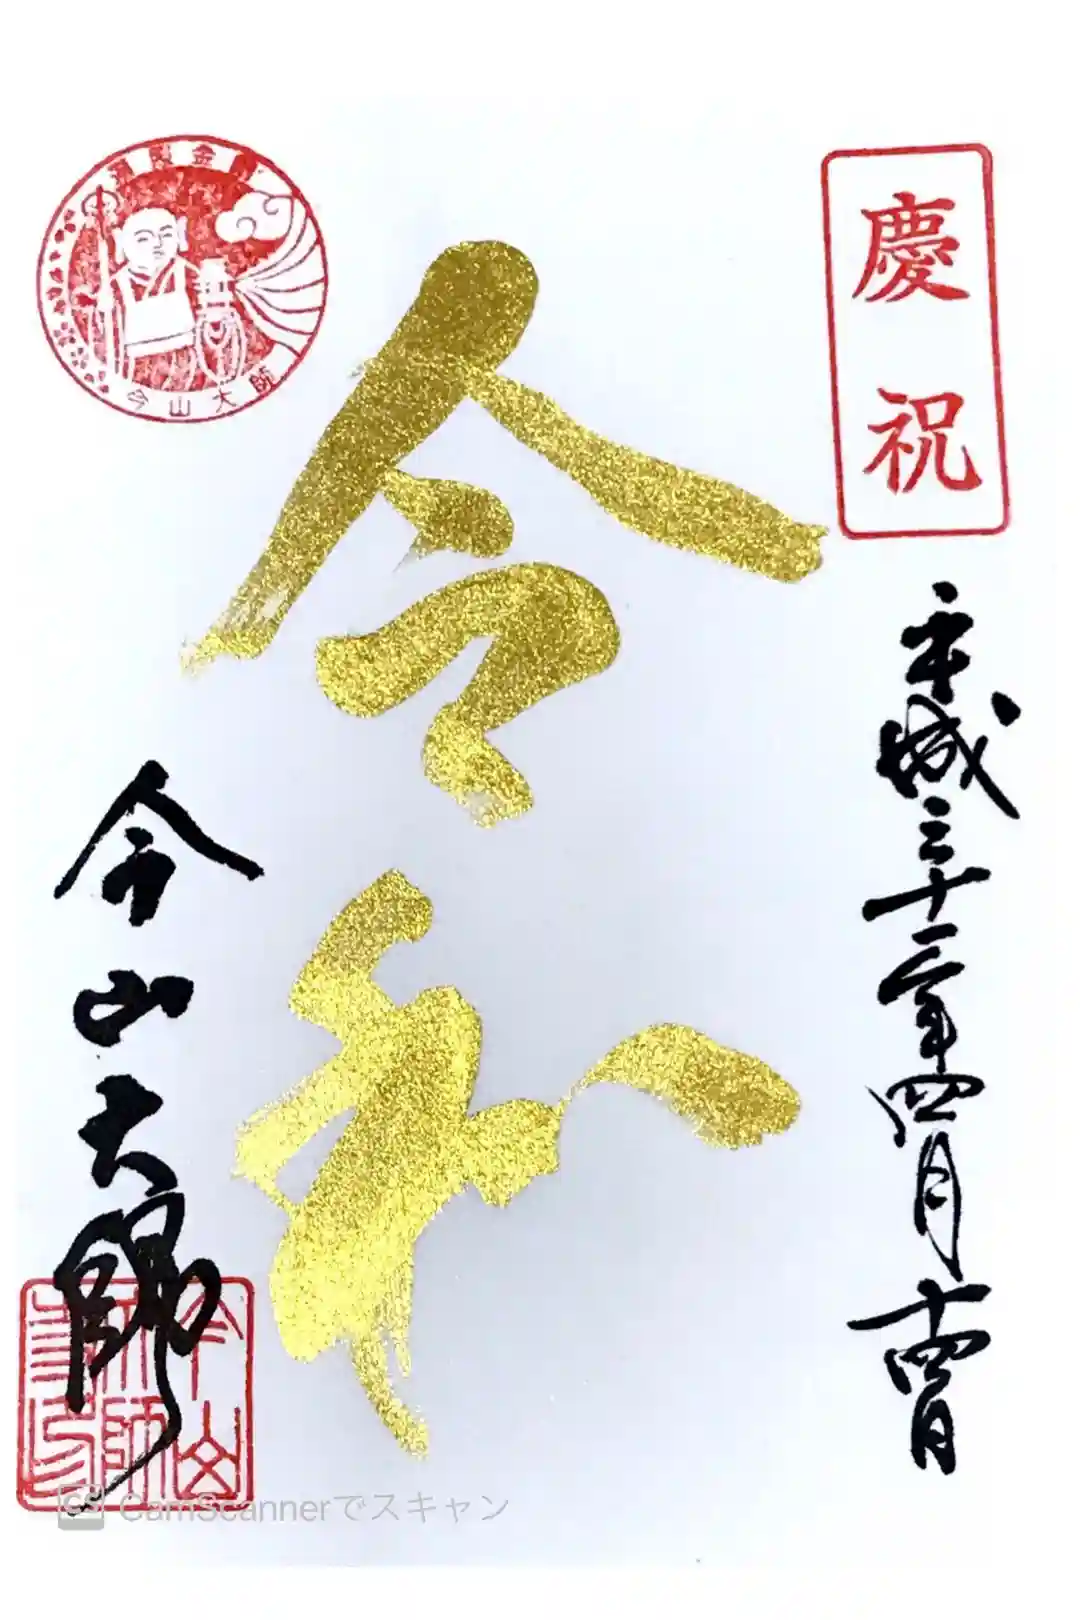 慶祝
平成三十一年四月十四日
令和
遍照金剛
今山大師
今山大師
CamScannerでスキャン